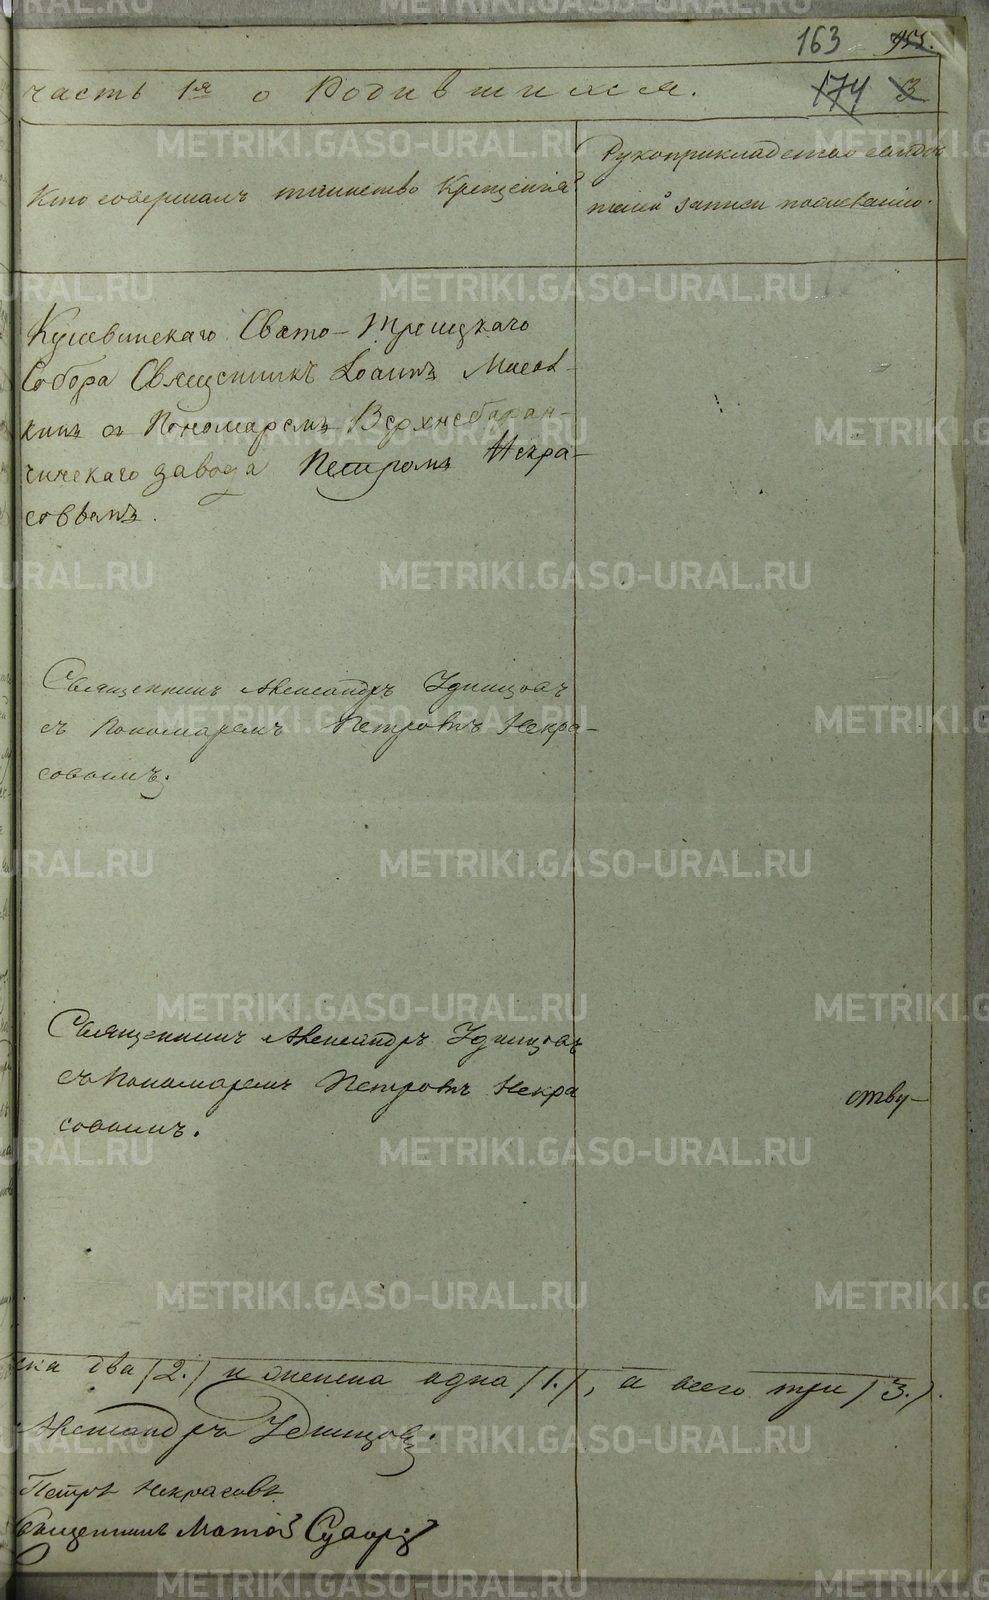 163 155.
часть 1я о Родившихся. 174 3
Кто совершалъ таинство Крещенія
Рукоприкладство свидѣ
телей записи по желанію.
Кушвинскаго Свято-Троицкаго
Собора Священникъ Іоаннъ
съ Пономаремъ Верхнебаран-
чинскаго завода Петромъ Некра-
совымъ.
Священникъ Александръ Удинцовъ
съ Пономаремъ Петромъ Некра-
совымъ.
Священникъ Александръ Удинцовъ
съ Пономаремъ Петромъ Некра
совымъ.
ству-
ска два (2.) и женска одна (1.), а всего три (3.).
Александръ Удинцовъ.
Петръ Некрасовъ
Священникъ
METRIKI.GASO-URAL.RU